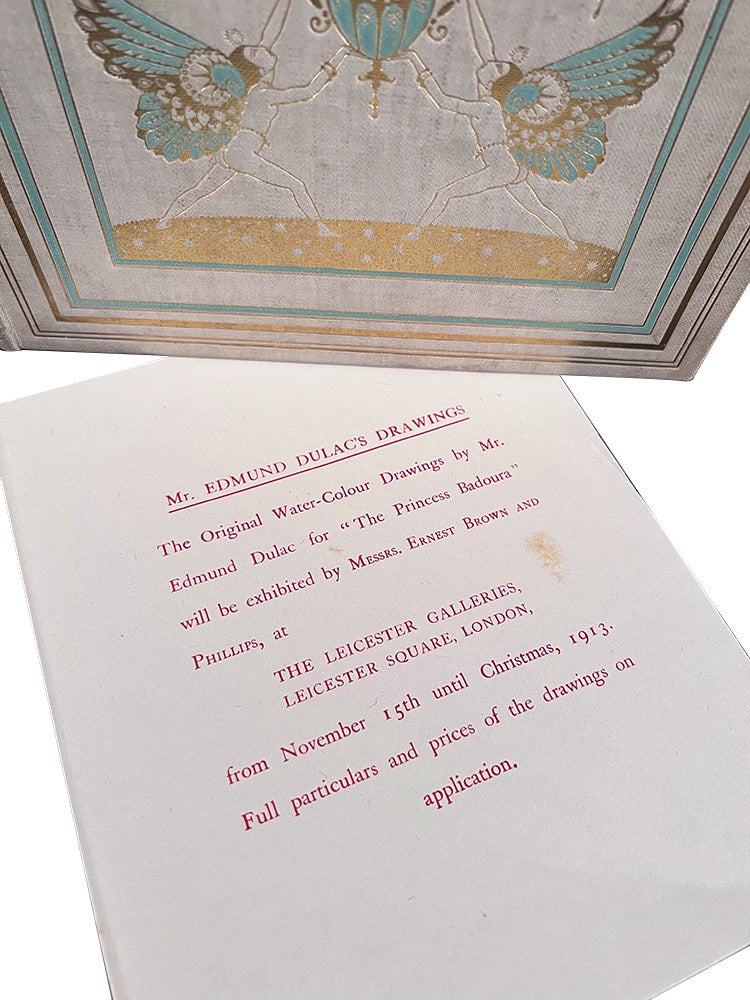 Mr. EDMUND DULAC'S DRAWINGS
The Original Water-Colour Drawings by Mr.
Edmund Dulac for "The Princess Badoura"
will be exhibited by Messrs. Ernest Brown and
Phillips, at
THE LEICESTER GALLERIES,
LEICESTER SQUARE, LONDON,
from November 15th until Christmas, 1913.
Full particulars and prices of the drawings on
application.